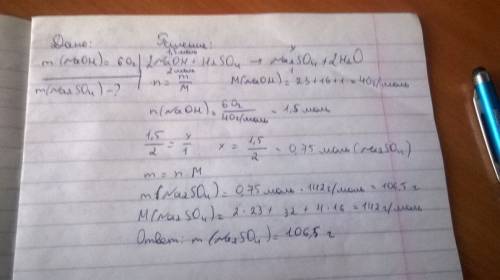 Дано:
Решение:
m(NaOH) = 60г
1,5 моль x
2NaOH + H₂SO₄ → Na₂SO₄ + 2H₂O
2 моль 1
m(Na₂SO₄) - ?
n = m/M
M(NaOH) = 23+16+1 = 40г/моль
n(NaOH) = 60г/40г/моль = 1,5 моль
1,5/2 = x/1 x = 1,5/2 = 0,75 моль (Na₂SO₄)
m = n · M
m(Na₂SO₄) = 0,75 моль · 142г/моль = 106,5 г
M(Na₂SO₄) = 2·23 + 32 + 4·16 = 142 г/моль
Ответ: m(Na₂SO₄) = 106,5 г